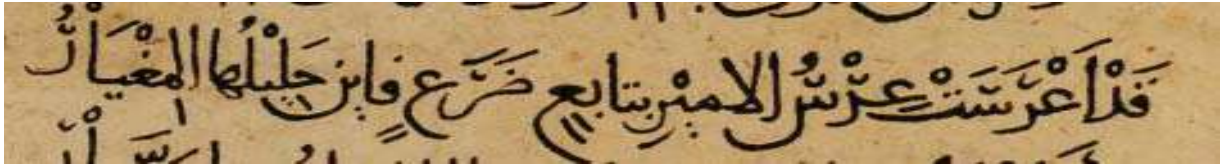 قَدْ اَعْرَسَتْ عِرْسُ الامِيْرِ بتابعٍ ضَرَعٍ فاين حَلِيْلُها المِغْيَارُ